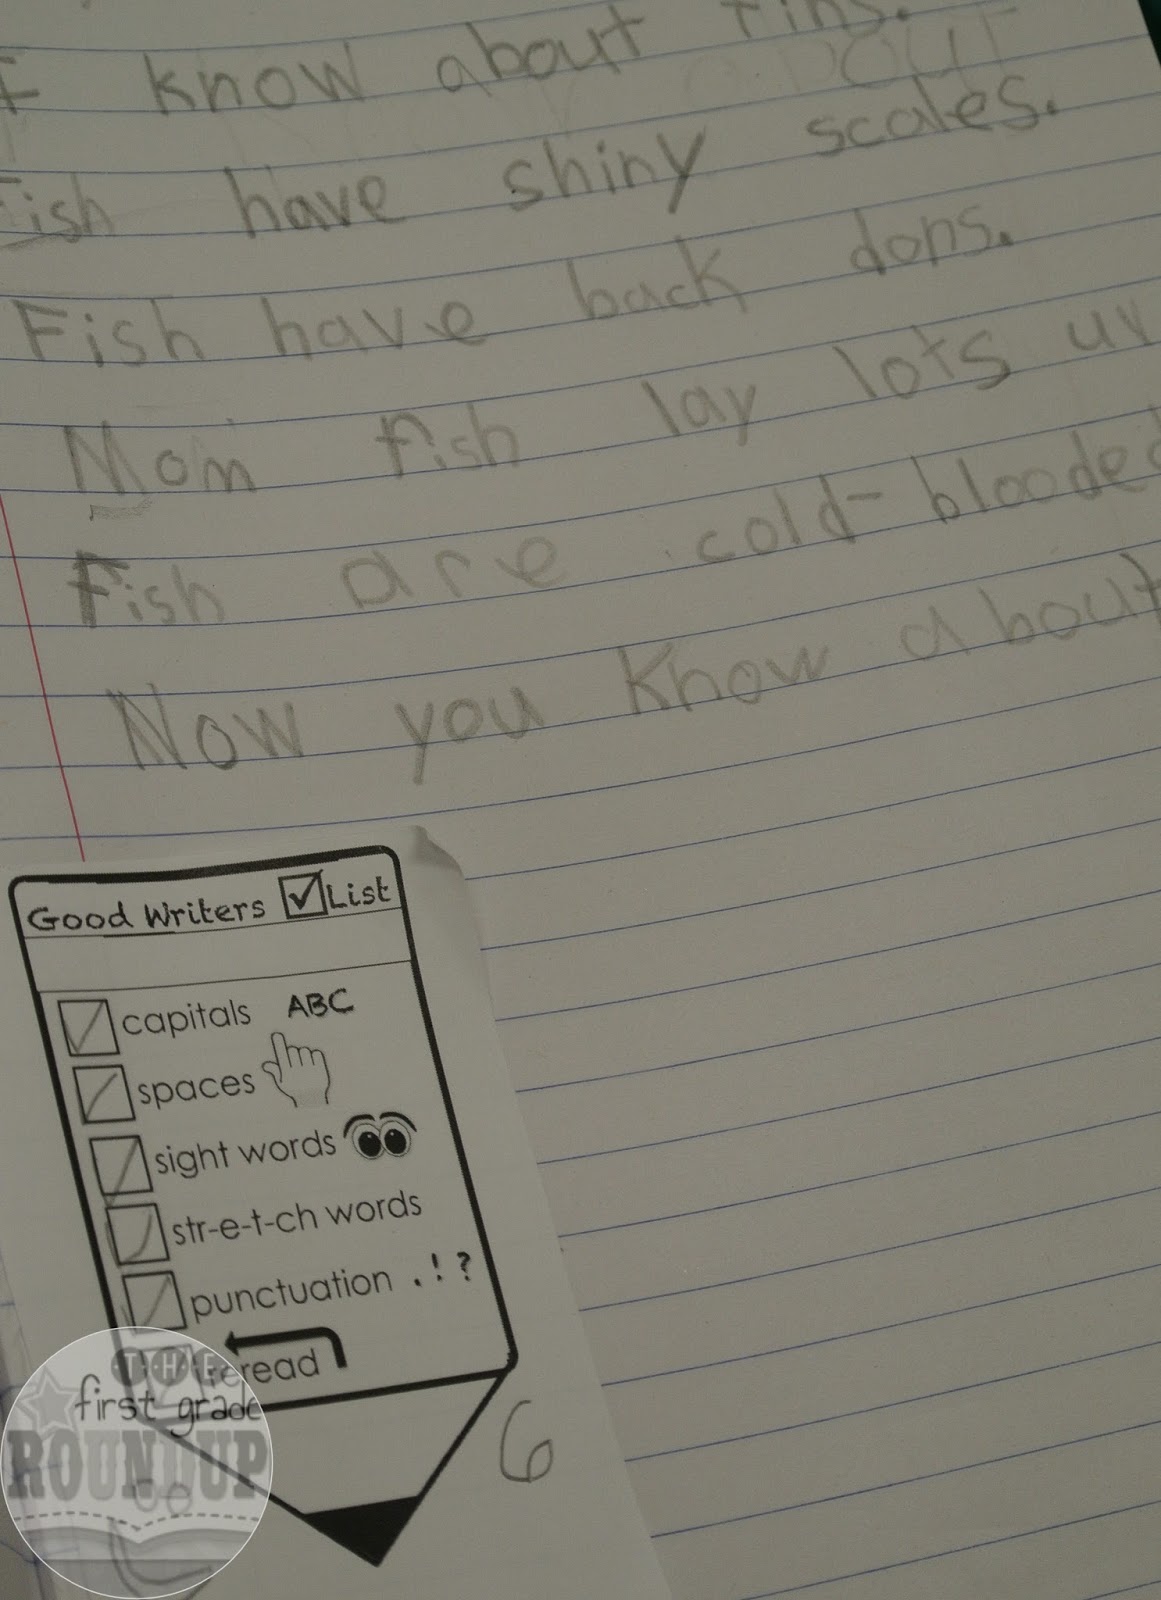 I know about
Fish have shiny scales.
Fish have back dons.
Mom fish lay lots uv
Fish are cold-blooded
Now you know about
Good Writers List
capitals ABC
spaces
sight words
str-e-t-ch words
punctuation . ! ?
reread
6
THE
first grade
ROUNDUP